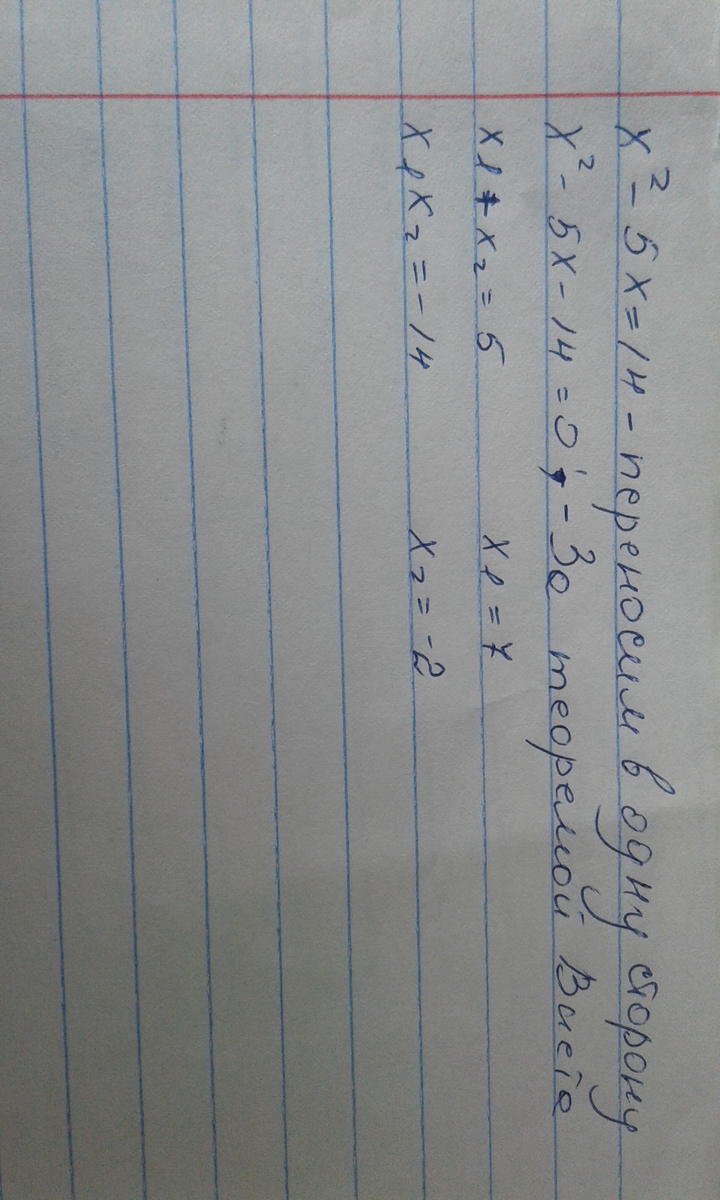 x² - 5x = 14 - переносим в одну сторону
x² - 5x - 14 = 0; - За теоремой Виета
x₁ + x₂ = 5 x₁ = 7
x₁x₂ = -14 x₂ = -2